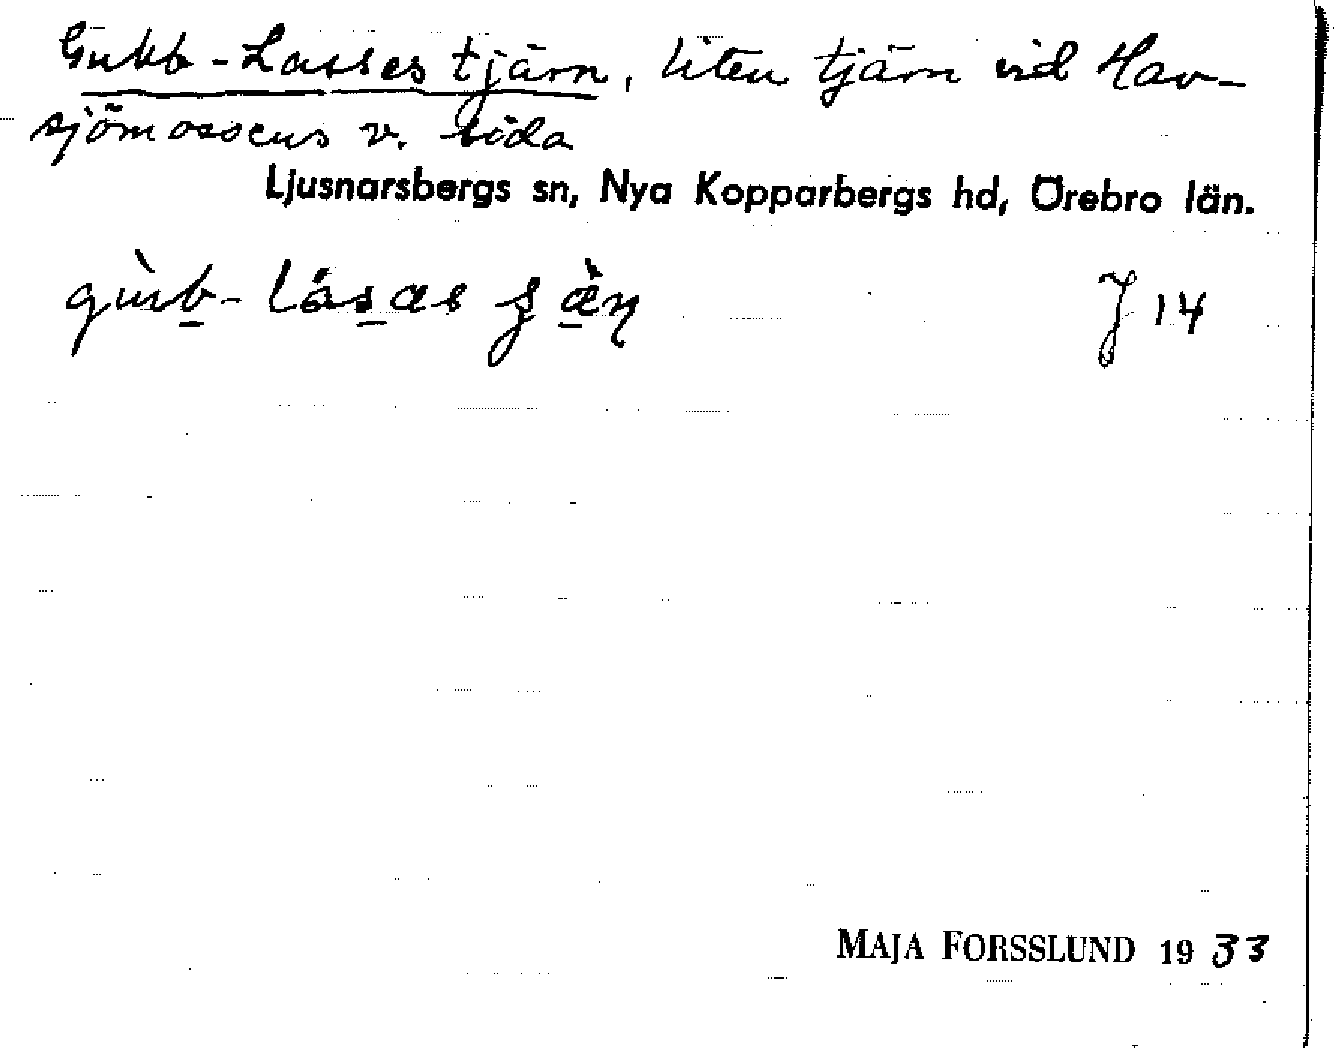 Gubb-Lasses tjärn, liten tjärn vid Hav-
sjömossens v. sida
Ljusnarsbergs sn, Nya Kopparbergs hd, Örebro län.
J 14
MAJA FORSSLUND 1933